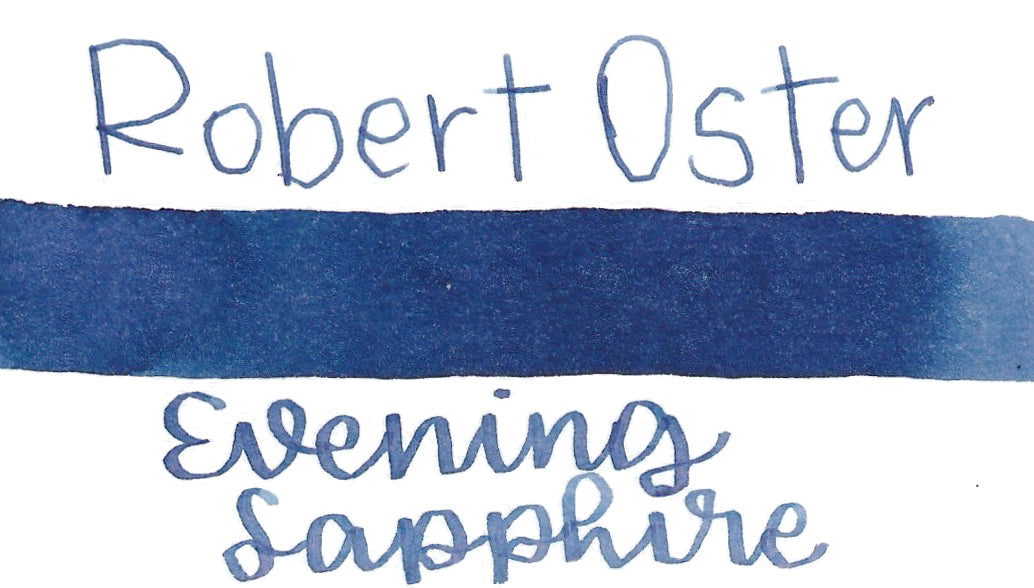 Robert Oster
Evening
Sapphire